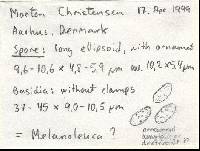 Morten Christensen 17. Apr 1999
Aarhus, Denmark
Spores: long ellipsoid, with ornament
9,6-10,6 x 4,8-5,9 µm av. 10,2x5,4µm
Basidia: without clamps
37-45 x 9,0-10,5 µm
= Melanoleuca ?
ornament